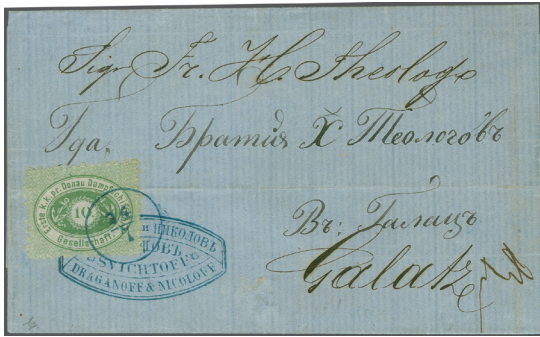 Sigr Fr. H. Theologo
Гда. Братия Х: Теологовъ
Въ: Галацъ
Galatz
Erste k.k. pr. Donau Dampfschi
10
Gesellschaft
и НИКОЛОВЪ
SVICHTOFF
DRAGANOFF & NICOLOFF